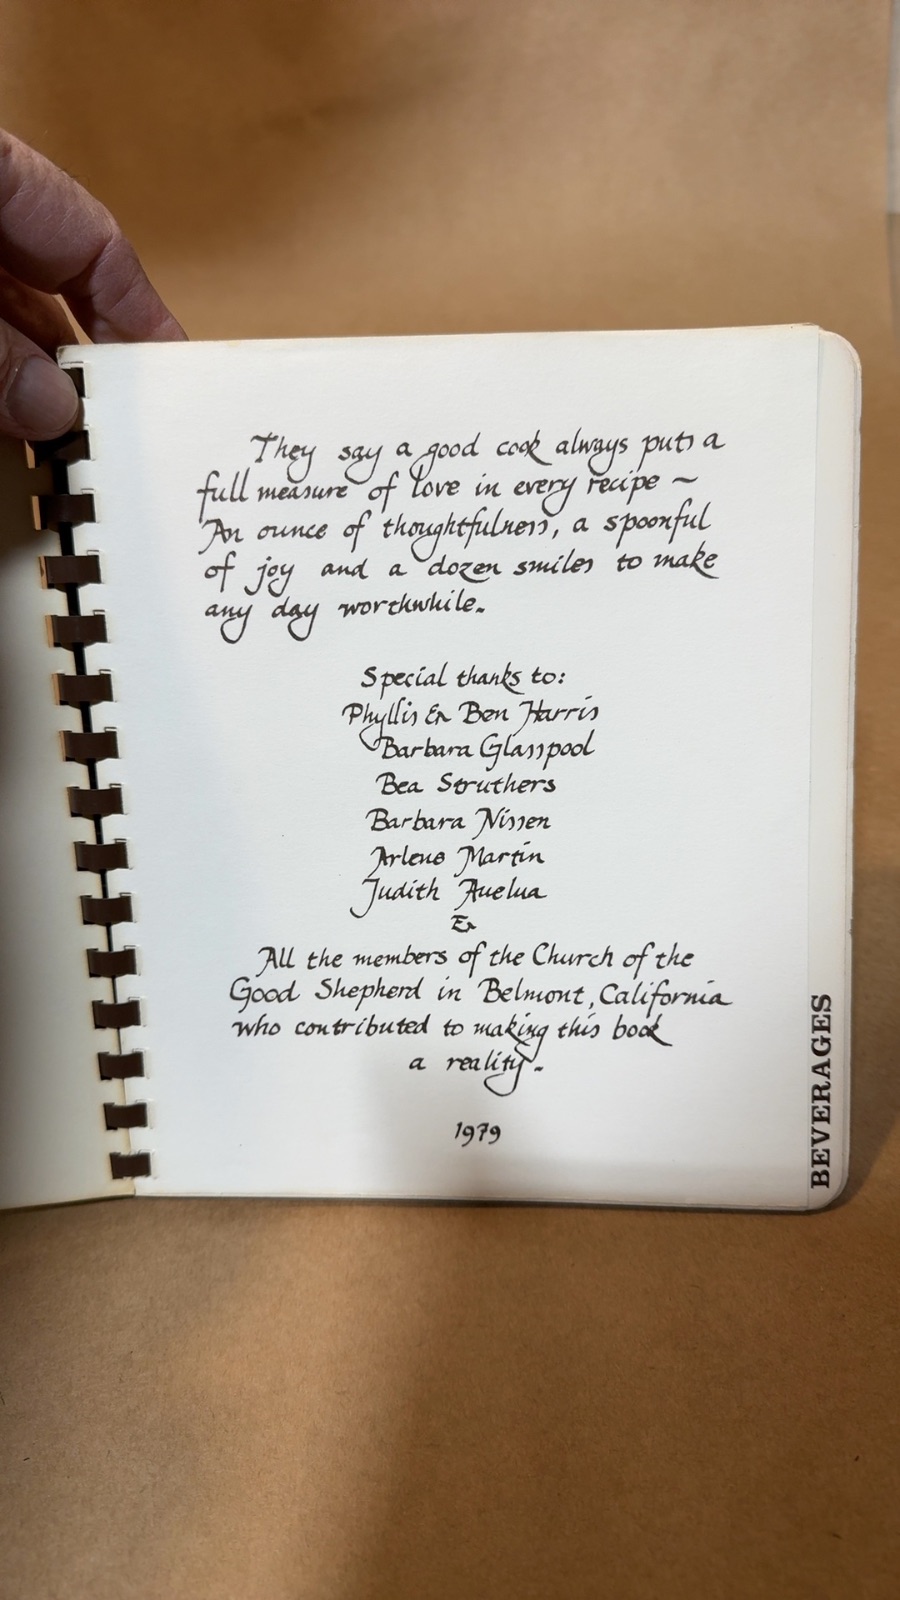 They say a good cook always puts a
full measure of love in every recipe ~
An ounce of thoughtfulness, a spoonful
of joy and a dozen smiles to make
any day worthwhile.
Special thanks to:
Phyllis & Ben Harris
Barbara Glasspool
Bea Struthers
Barbara Nissen
Arlene Martin
Judith Auelua
&
All the members of the Church of the
Good Shepherd in Belmont, California
who contributed to making this book
a reality.
1979
BEVERAGES